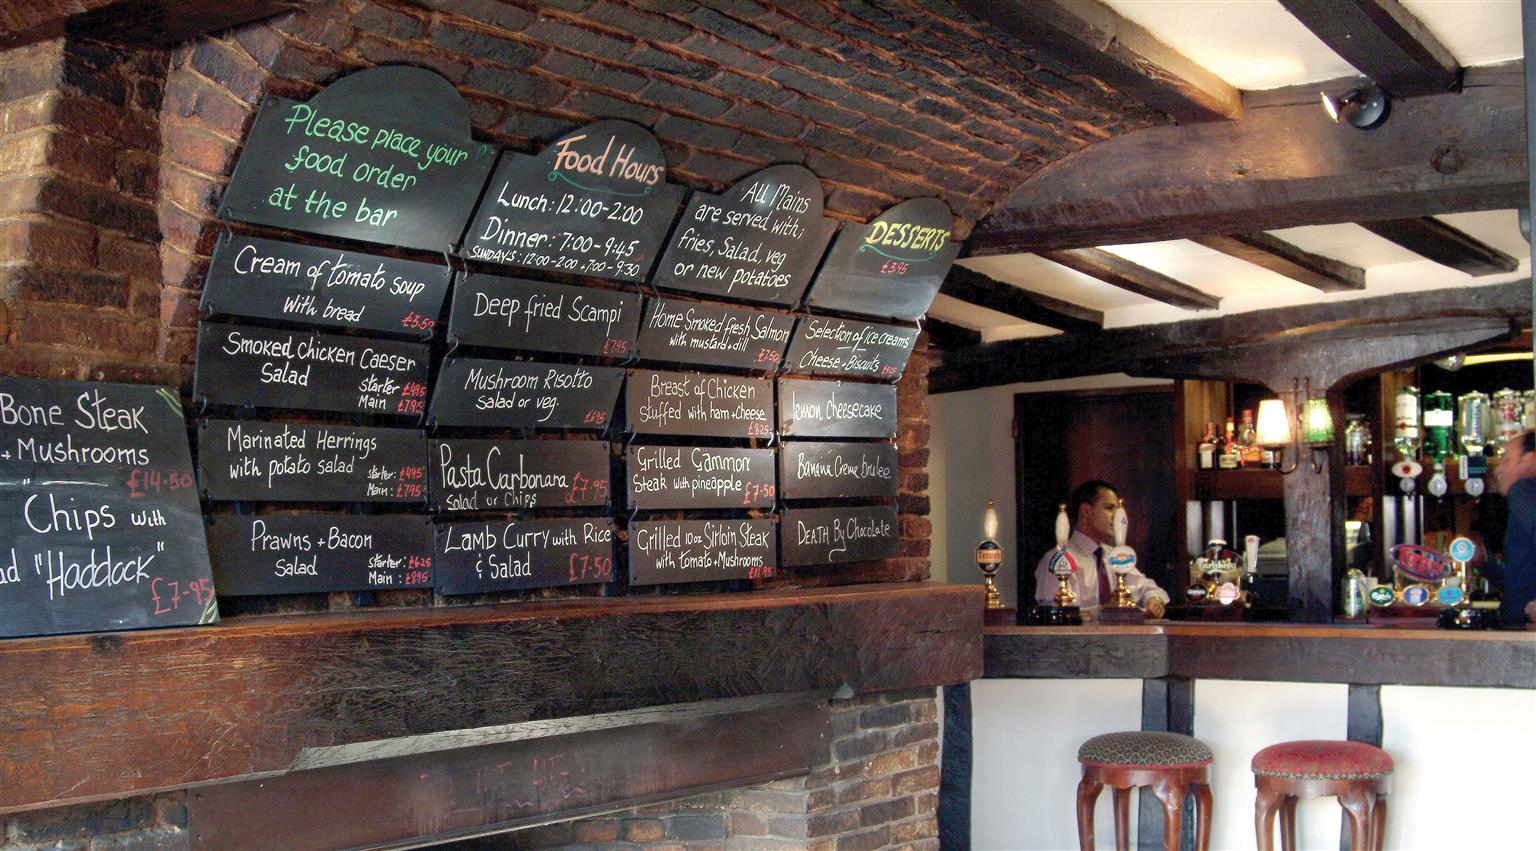 Please place your
food order
at the bar
Cream of tomato soup
with bread
£3.50
Smoked Chicken Caeser
Salad
starter £4.95
Main £7.95
Marinated Herrings
with potato salad
starter: £4.95
Main: £7.95
Prawns + Bacon
Salad
starter: £6.25
Main: £8.95
Food Hours
Lunch: 12:00-2:00
Dinner: 7:00-9:45
SUNDAYS: 12:00-2:00 + 7:00-9:30
Deep fried Scampi
£7.95
Mushroom Risotto
Salad or veg.
£6.95
Pasta Carbonara £7.95
Salad or Chips
Lamb Curry with Rice
& Salad £7.50
All Mains
are served with;
fries, Salad, veg
or new potatoes
Home Smoked fresh Salmon
with mustard + dill
£7.50
Breast of Chicken
stuffed with ham + cheese
£8.25
Grilled Gammon
Steak with pineapple
£7.50
Grilled 10oz Sirloin Steak
with tomato + Mushrooms
£11.95
DESSERTS
£3.95
Selection of ice creams
Cheese + Biscuits
lemon cheesecake
Banana Creme brulee
DEATH By Chocolate
Bone Steak
+ Mushrooms
£14.50
Chips with
"Haddock"
£7.95
Carlsberg